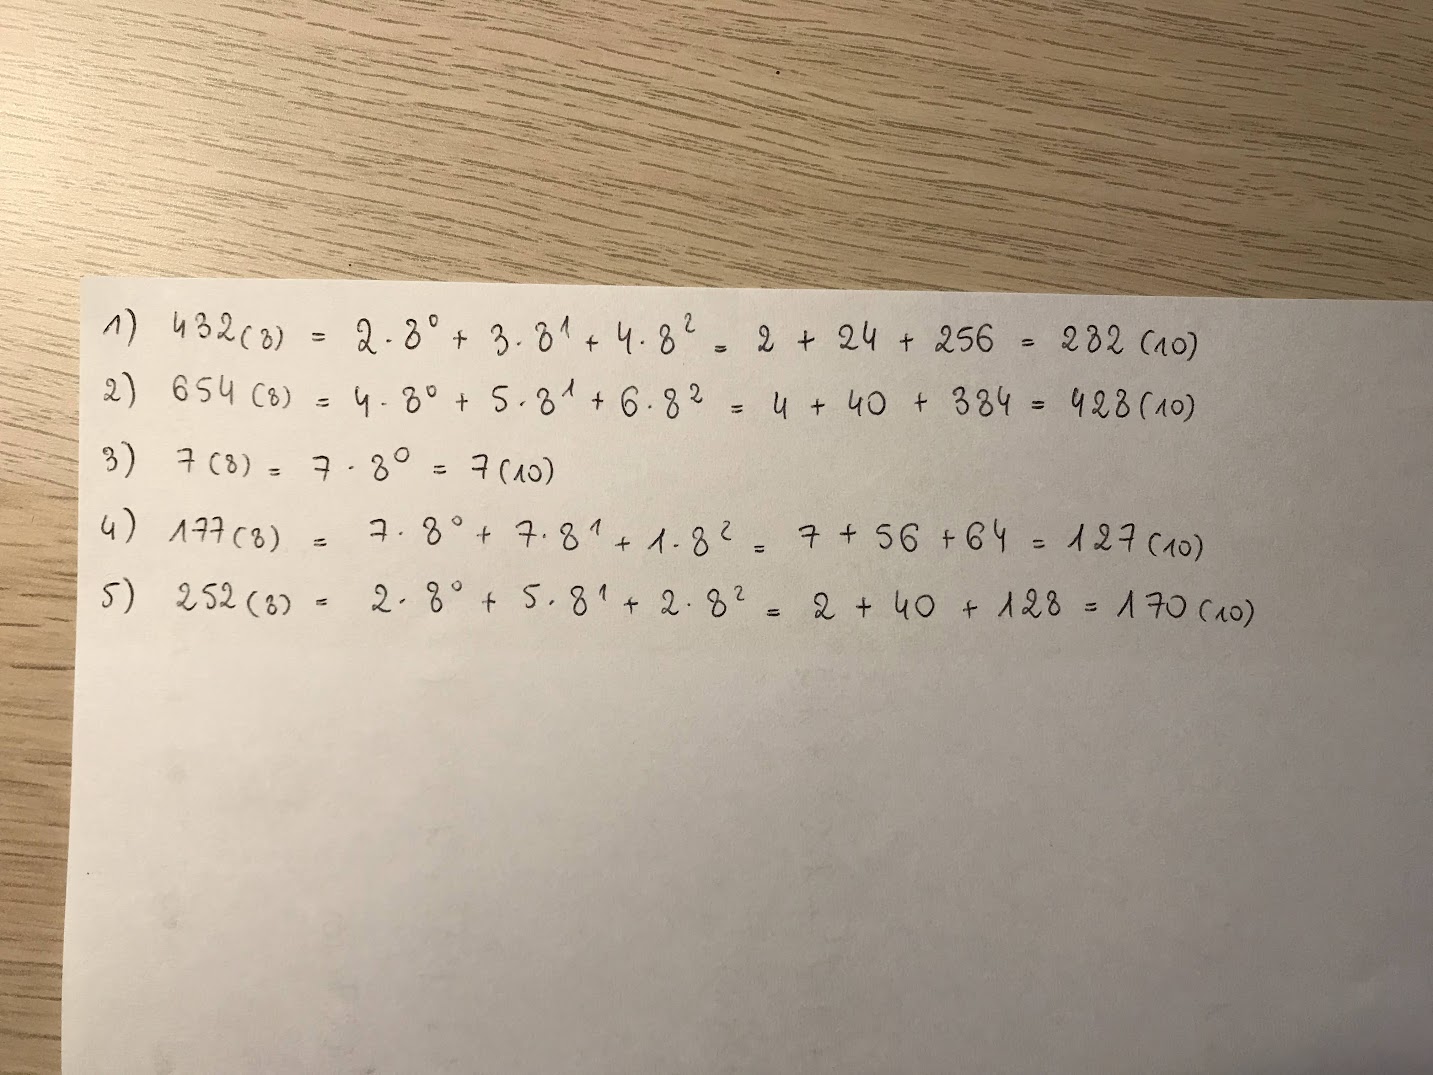 1) 432(8) = 2·8⁰ + 3·8¹ + 4·8² = 2 + 24 + 256 = 282 (10)
2) 654(8) = 4·8⁰ + 5·8¹ + 6·8² = 4 + 40 + 384 = 428(10)
3) 7(8) = 7·8⁰ = 7(10)
4) 177(8) = 7·8⁰ + 7·8¹ + 1·8² = 7 + 56 + 64 = 127(10)
5) 252(8) = 2·8⁰ + 5·8¹ + 2·8² = 2 + 40 + 128 = 170(10)